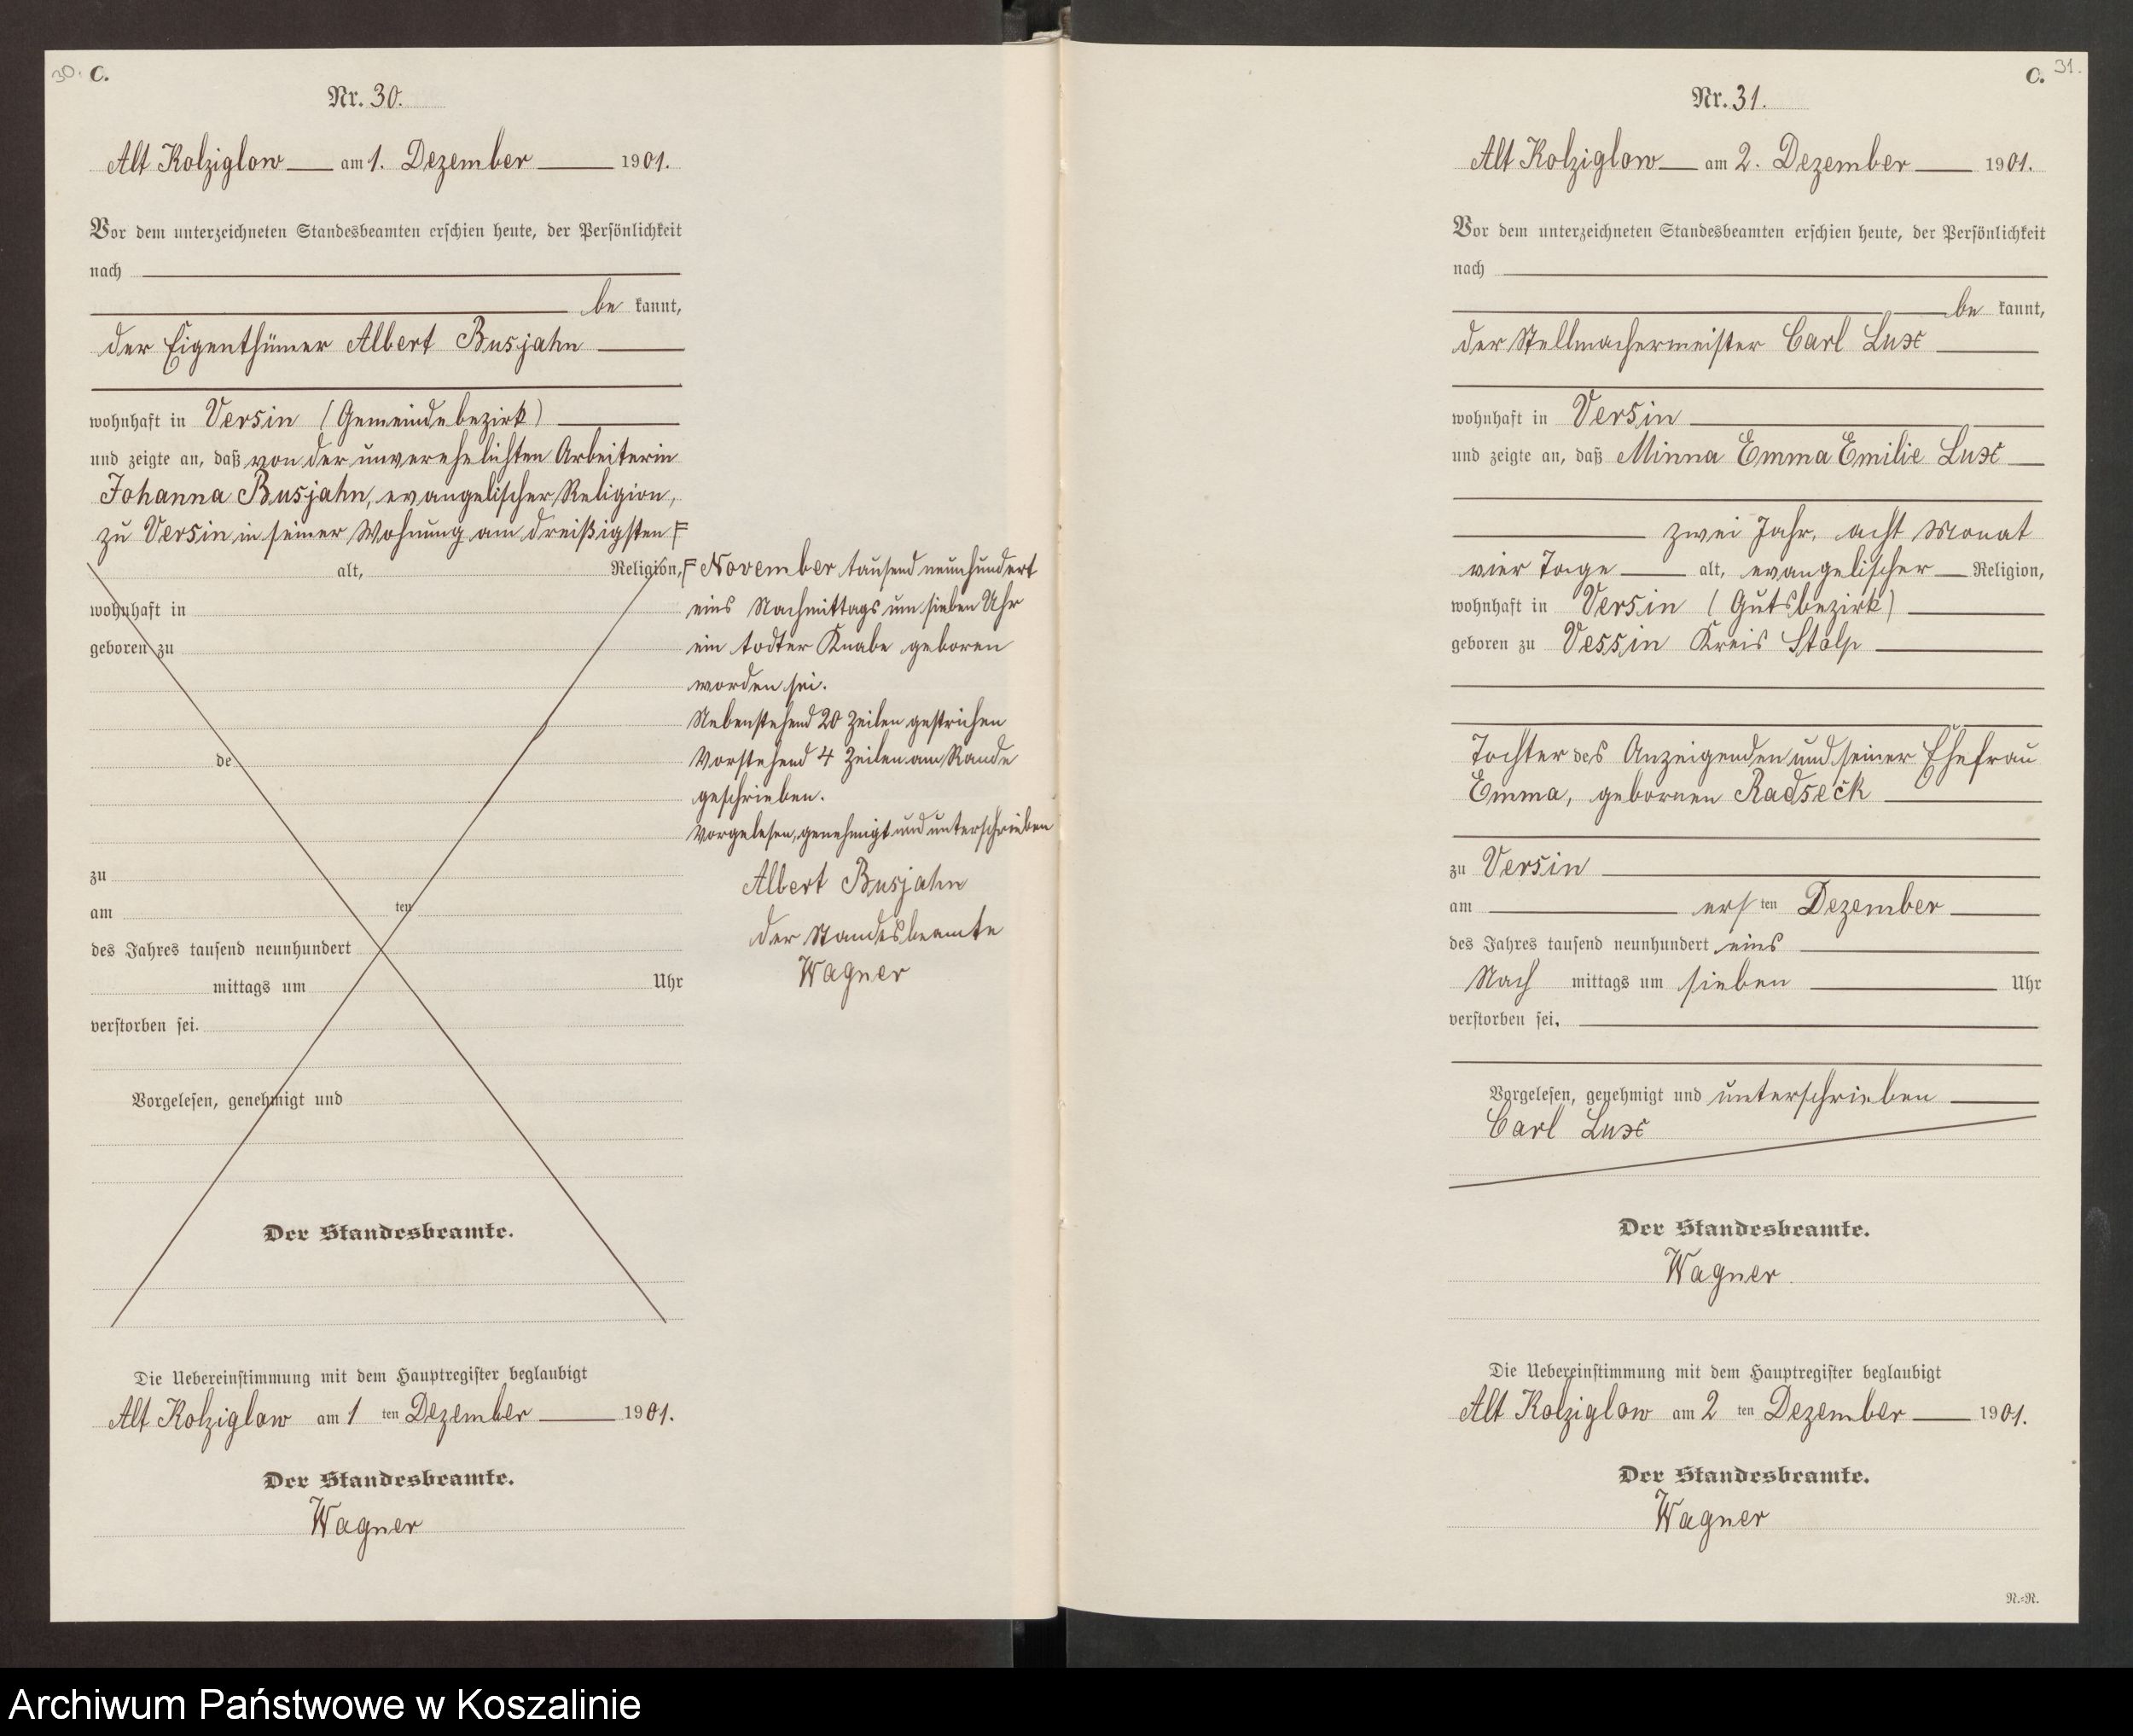 30. C.
Nr. 30.
Alt Kolziglow am 1. Dezember 1901.
Vor dem unterzeichneten Standesbeamten erschien heute, der Persönlichkeit
nach
be kannt,
der Eigenthümer Albert Busjahn
wohnhaft in Versin (Gemeindebezirk)
und zeigte an, daß von der unverehelichten Arbeiterin
Johanna Busjahn, evangelischer Religion,
zu Versin in seiner Wohnung am dreißigsten F
alt, Religion,
wohnhaft in
geboren zu
de
zu
am ten
des Jahres tausend neunhundert
mittags um Uhr
verstorben sei.
Vorgelesen, genehmigt und
Der Standesbeamte.
F November tausend neunhundert
eins Nachmittags um sieben Uhr
ein todter Knabe geboren
worden sei.
Nebenstehend 20 Zeilen gestrichen
Vorstehend 4 Zeilen am Rande
geschrieben.
Vorgelesen, genehmigt und unterschrieben
Albert Busjahn
der Standesbeamte
Wagner
Die Uebereinstimmung mit dem Hauptregister beglaubigt
Alt Kolziglow am 1 ten Dezember 1901.
Der Standesbeamte.
Wagner
C. 31.
Nr. 31.
Alt Kolziglow am 2. Dezember 1901.
Vor dem unterzeichneten Standesbeamten erschien heute, der Persönlichkeit
nach
be kannt,
der Stellmachermeister Carl Lux
wohnhaft in Versin
und zeigte an, daß Minna Emma Emilie Lux
zwei Jahr, acht Monat
vier Tage alt, evangelischer Religion,
wohnhaft in Versin (Gutsbezirk)
geboren zu Vessin Kreis Stolp
Tochter des Anzeigenden und seiner Ehefrau
Emma, gebornen Radseck
zu Versin
am ers ten Dezember
des Jahres tausend neunhundert eins
Nach mittags um sieben Uhr
verstorben sei.
Vorgelesen, genehmigt und unterschrieben
Carl Lux
Der Standesbeamte.
Wagner.
Die Uebereinstimmung mit dem Hauptregister beglaubigt
Alt Kolziglow am 2 ten Dezember 1901.
Der Standesbeamte.
Wagner
N.-N.
Archiwum Państwowe w Koszalinie